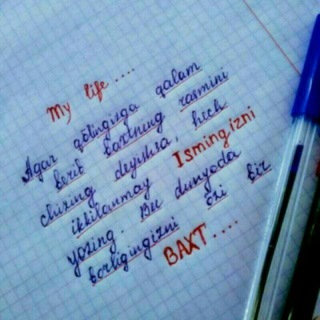 My life.....
Agar qo'lingizga qalam
berib baxtning rasmini
chizing deyishsa, hech
ikkilanmay Ismingizni
yozing. Bu dunyoda
borligingizni o'zi bir
BAXT....